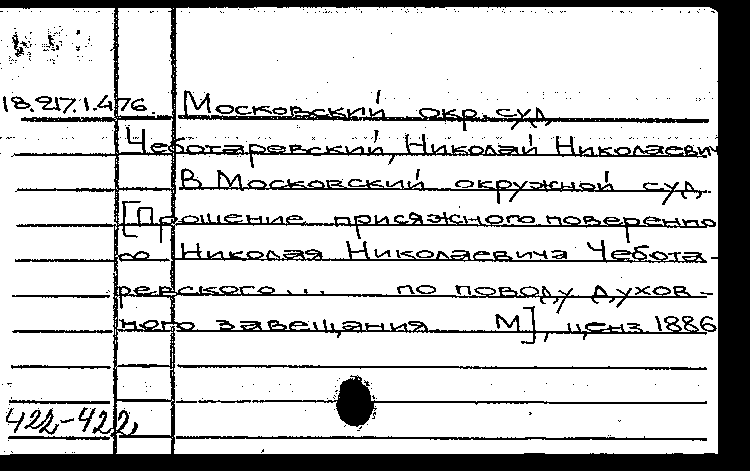 18.217.1.476. Московский окр. суд
Чеботаревский, Николай Николаевич
В Московский окружной суд.
[Прошение присяжного поверенно
го Николая Николаевича Чебота-
ревского... по поводу духов-
ного завещания М], ценз. 1886
422-422